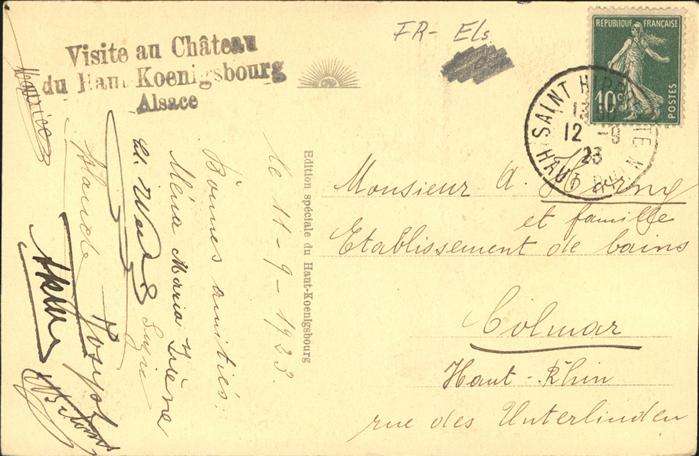 Visite au Château
du Haut Koenigsbourg
Alsace
FR- Els
RÉPUBLIQUE FRANÇAISE
10c
POSTES
SAINT HIPPOLYTE
12 -9
23
HAUT RHIN
Maurice
le 11-9-1923.
Bonnes amitiés.
Maria Irène
Joseph
Edition spéciale du Haut-Koenigsbourg
Monsieur A.
et famille
Etablissement de bains
Colmar
Haut-Rhin
rue des Unterlinden